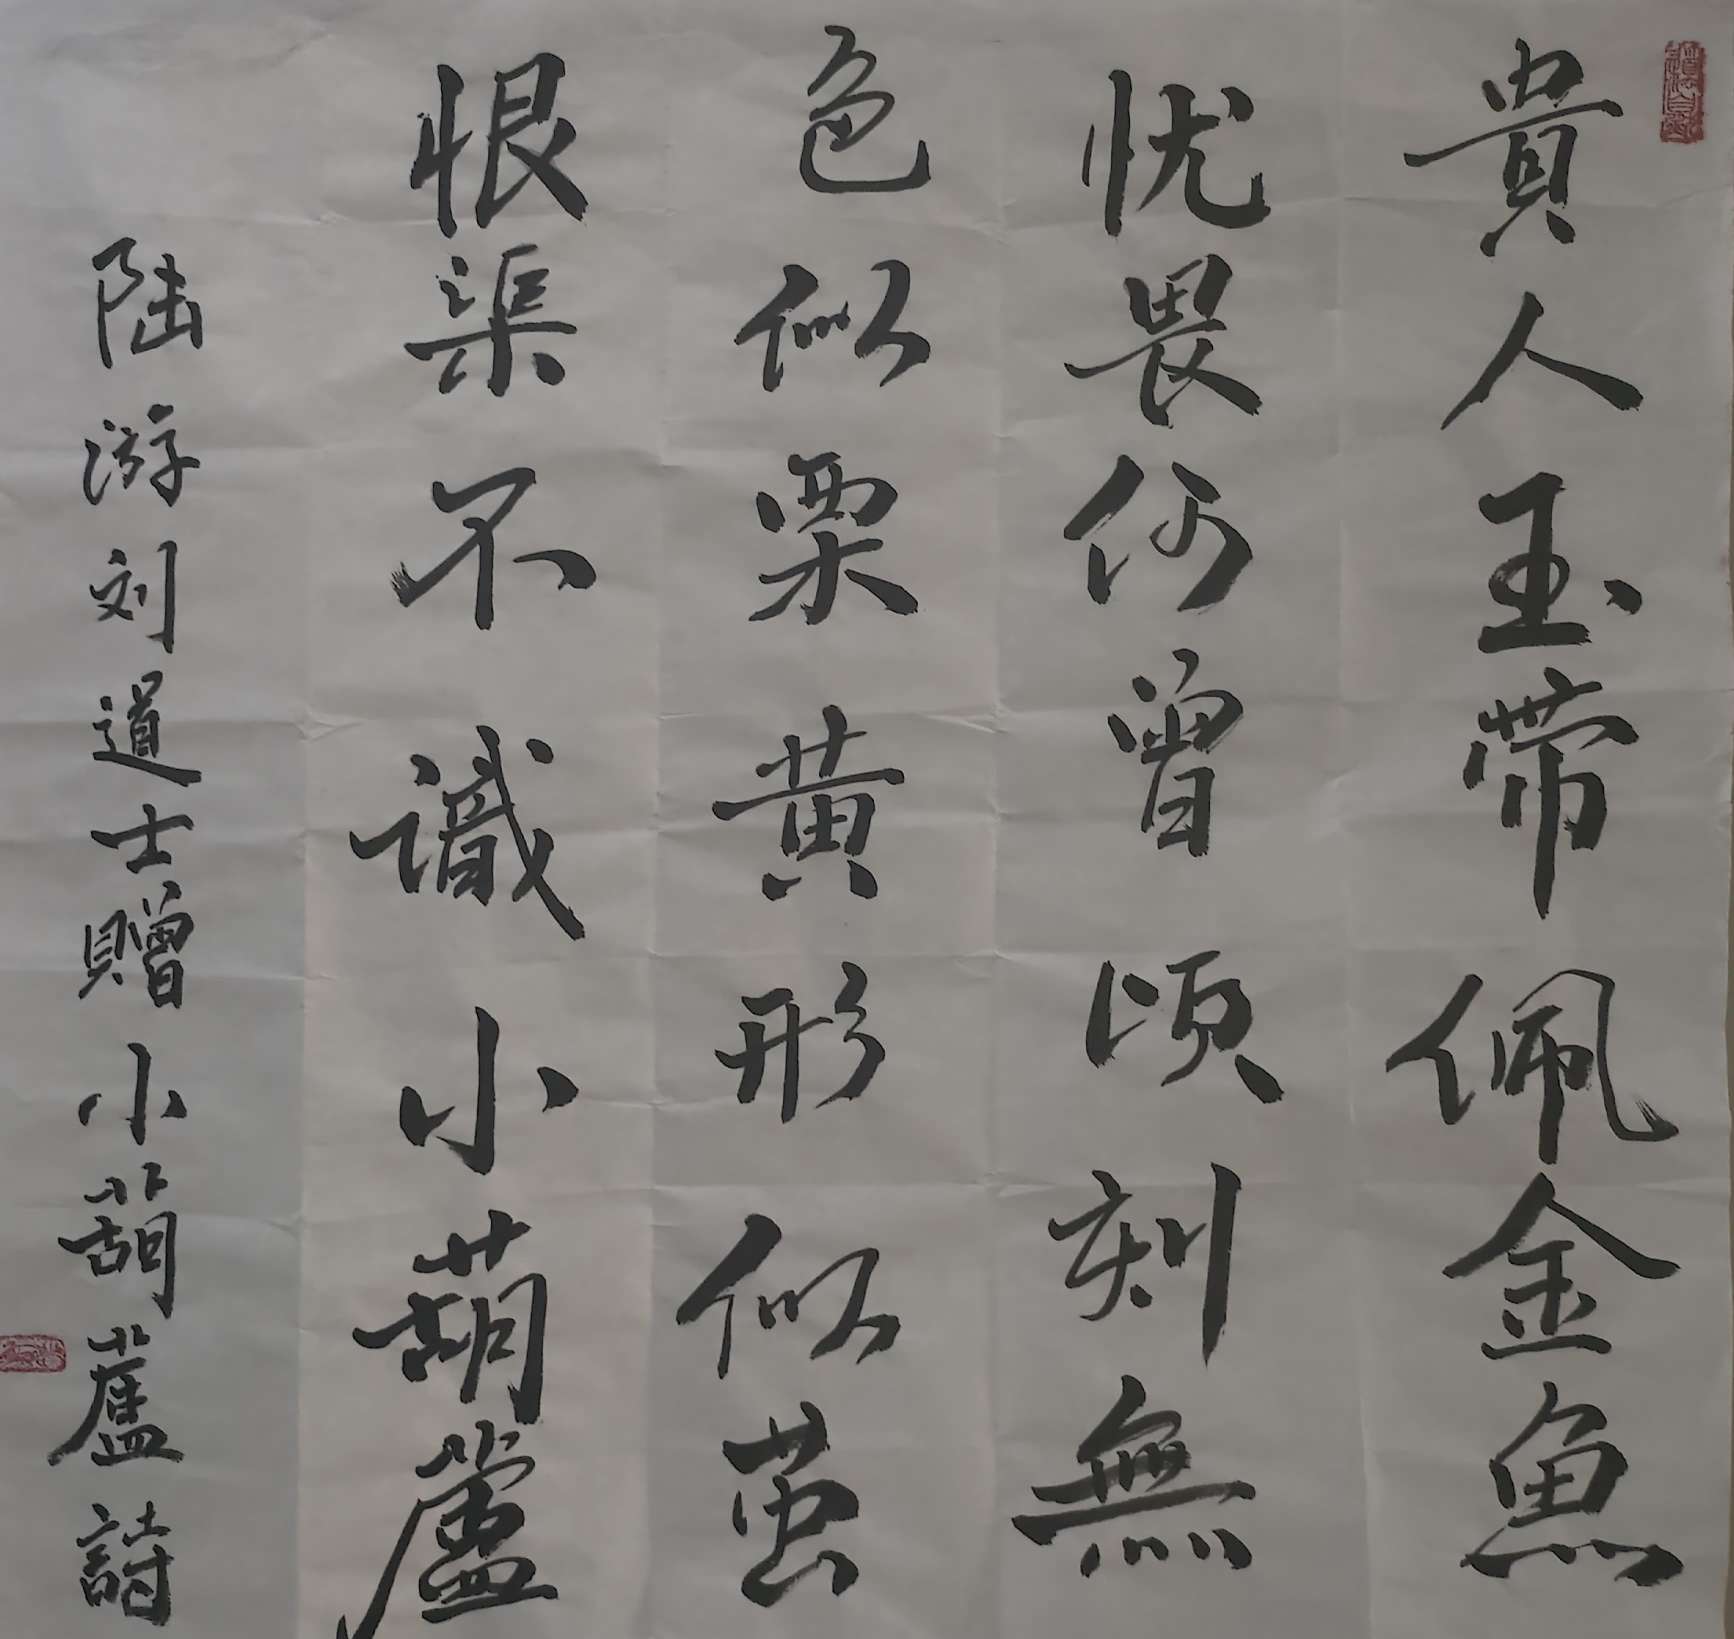 貴人玉带佩金魚
忧畏何曾頃刻無
色似栗黄形似茧
恨渠不識小葫蘆
陆游刘道士赠小葫蘆詩